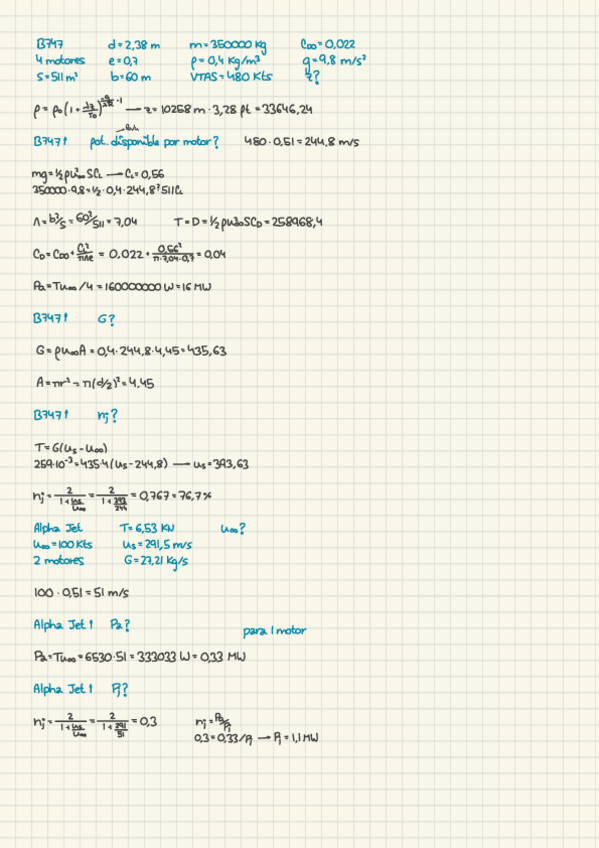 B747 d = 2,38 m m = 350000 Kg CD0 = 0,022
4 motores e = 0,7 ρ = 0,4 Kg/m³ g = 9,8 m/s²
S = 511 m² b = 60 m VTAS = 480 Kts z?
z = 10258 m · 3,28 pt = 33646,24
B747↑ pot. disponible por motor? 480 · 0,51 = 244,8 m/s
mg = ½ρu²∞SCL → CL = 0,56
350000 · 9,8 = ½ · 0,4 · 244,8² 511CL
Λ = b²/S = 60²/511 = 7,04 T = D = ½ρu²∞SCD = 258968,4
CD = CD0 + CL²/πΛe = 0,022 + 0,56²/π·7,04·0,7 = 0,04
Pa = Tu∞/4 = 160000000 W = 16 MW
B747↑ G?
G = ρu∞A = 0,4 · 244,8 · 4,45 = 435,63
A = πr² = π(d/2)² = 4,45
B747↑ nj?
T = G(us - u∞)
259·10⁻³ = 435·4(us - 244,8) → us = 393,63
nj = 2/(1 + us/u∞) = 2/(1 + 393/244) = 0,767 = 76,7%
Alpha Jet T = 6,53 KN u∞?
u∞ = 100 Kts us = 291,5 m/s
2 motores G = 27,21 Kg/s
100 · 0,51 = 51 m/s
Alpha Jet↑ Pa?
para 1 motor
Pa = Tu∞ = 6530·51 = 333033 W = 0,33 MW
Alpha Jet↑ Pj?
nj = 2/(1 + us/u∞) = 2/(1 + 291/51) = 0,3 nj = Pa/Pj
0,3 = 0,33/Pj → Pj = 1,1 MW